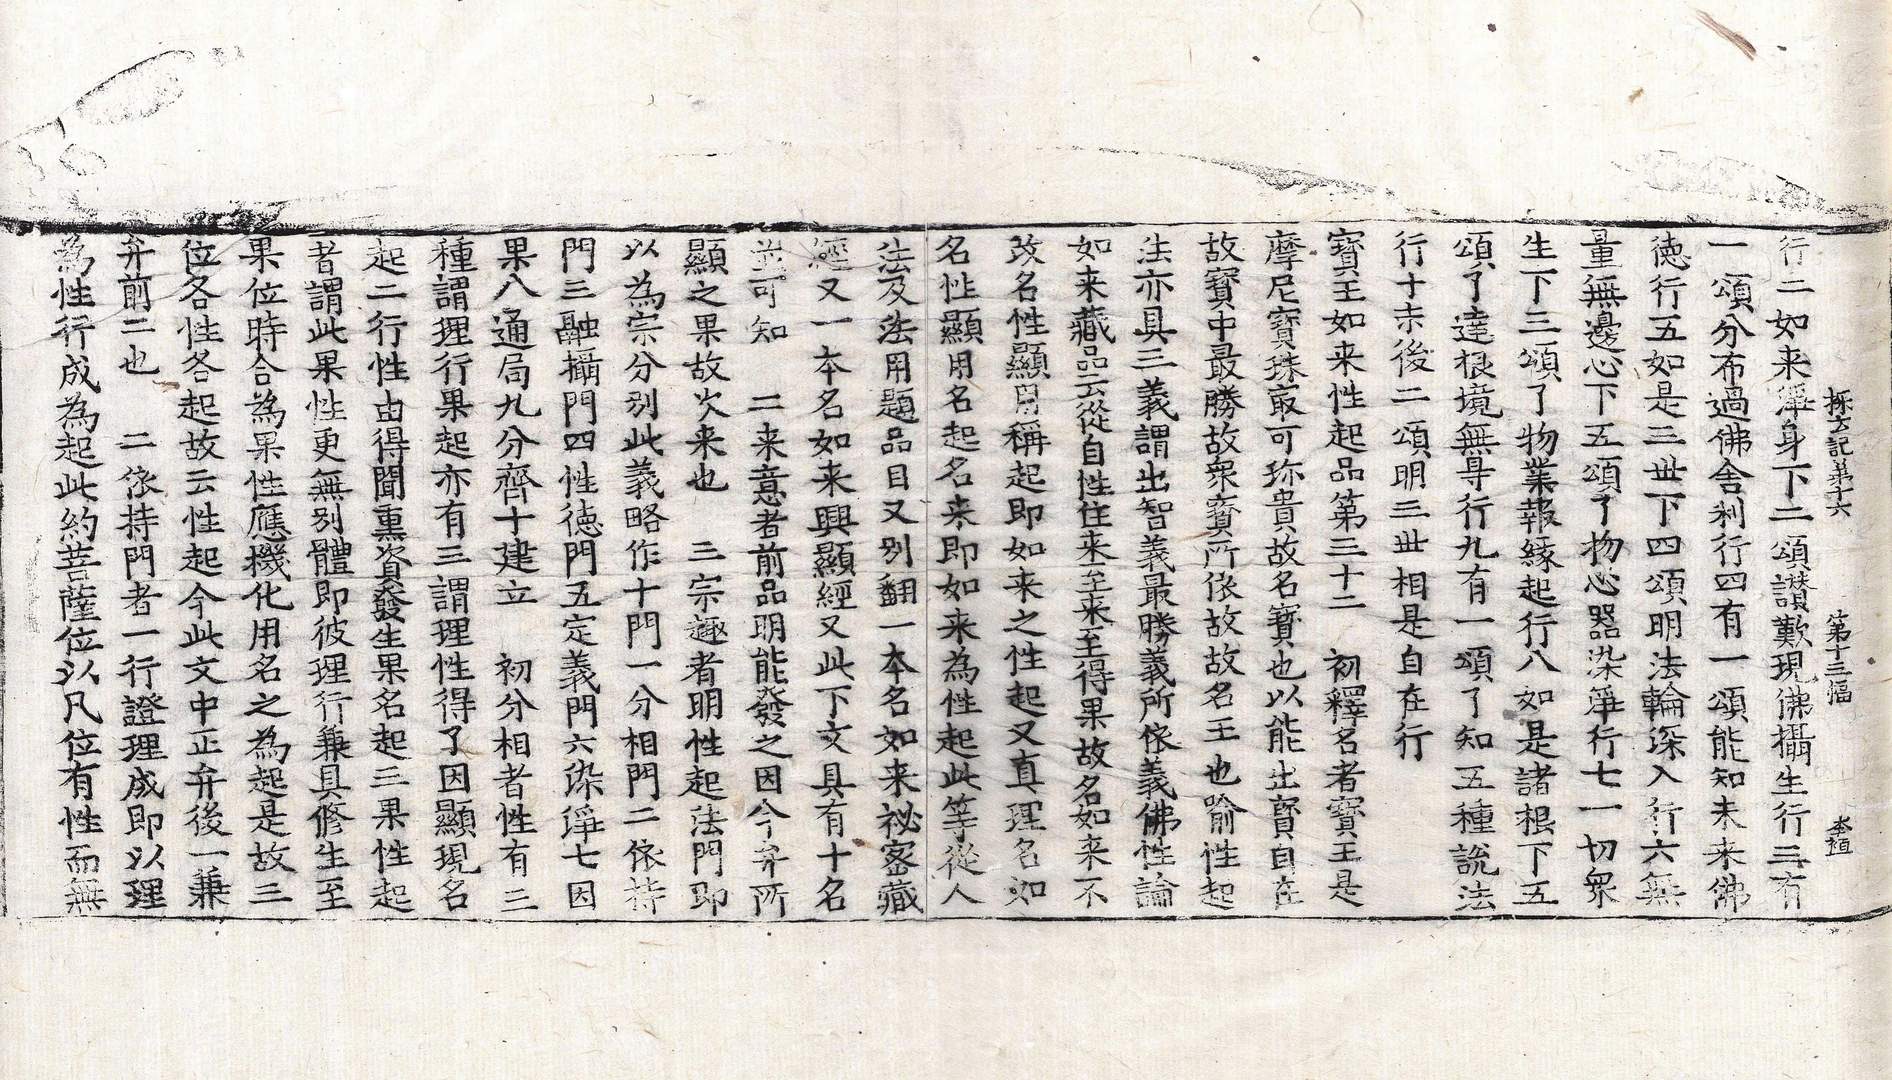 探玄記第十六 第十三幅 李植
行二如来淨身下二頌讃歎現佛攝生行三有
一頌分布過佛舎利行四有一頌能知未来佛
徳行五如是三世下四頌明法輪深入行六無
量無邊心下五頌了物心器染淨行七一切衆
生下三頌了物業報緣起行八如是諸根下五
頌了達根境無㝵行九有一頌了知五種說法
行十末後二頌明三世相是自在行
寳王如来性起品第三十二 初釋名者寳王是
摩尼寳珠㝡可珎貴故名寳也以能出寳自在
故寳中最勝故衆寳所依故故名王也喻性起
法亦具三義謂出智義最勝義所依義佛性論
如来藏品云從自性住来至来至得果故名如来不
改名性顯用稱起即如来之性起又真理名如
名性顯用名起名来即如来為性起此等從人
法及法用題品目又别翻一本名如来祕密藏
經又一本名如来興顯經又此下文具有十名
並可知 二来意者前品明能發之因今弁所
顯之果故次来也 三宗趣者明性起法門即
以為宗分别此義略作十門一分相門二依持
門三融攝門四性徳門五定義門六染淨七因
果八通局九分齊十建立 初分相者性有三
種謂理行果起亦有三謂理性得了因顯現名
起二行性由得聞熏資發生果名起三果性起
者謂此果性更無别體即彼理行兼具修生至
果位時合為果性應機化用名之為起是故三
位各性各起故云性起今此文中正弁後一兼
弁前二也 二依持門者一行證理成即以理
為性行成為起此約菩薩位以凡位有性而無